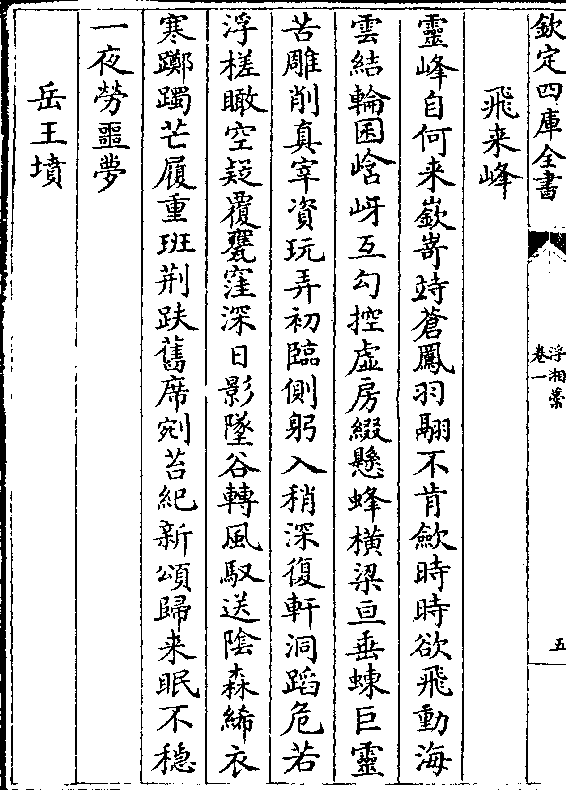 欽定四庫全書
浮湘藳
卷一
五
飛来峰
靈峰自何来嶔嵜跱蒼鳳羽翮不肯歛時時欲飛動海
雲結輪囷峆岈互勾控虛房綴懸蜂横梁亘垂蝀巨靈
苦雕削真宰資玩弄初臨側躬入稍深復軒洞蹈危若
浮槎瞰空疑覆甕窪深日影墜谷轉風馭送陰森絺衣
寒躑躅芒履重班荆趺舊席剜苔紀新頌歸来眠不穏
一夜勞噩夢
岳王墳